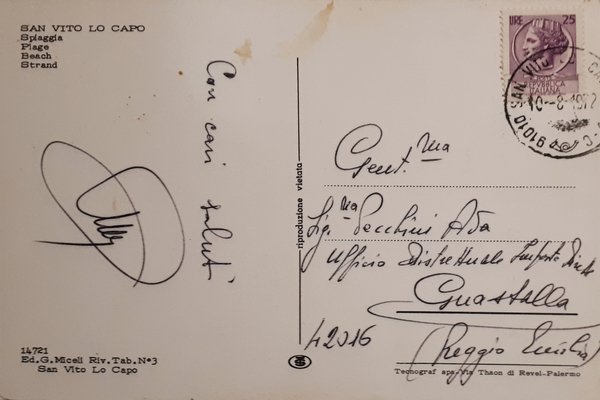 SAN VITO LO CAPO
Spiaggia
Plage
Beach
Strand
Con cari saluti
14721
Ed.G.Miceli Riv.Tab.N°3
San Vito Lo Capo
riproduzione vietata
LIRE 25
REPUBBLICA
ITALIANA
91010 SAN VITO
10-8-1972
Gent.ma
Sig.ma Pecchini Ada
Ufficio Distrettuale Imposte Dirette
Guastalla
42016 (Reggio Emilia)
Tecnograf spa-Via Thaon di Revel-Palermo